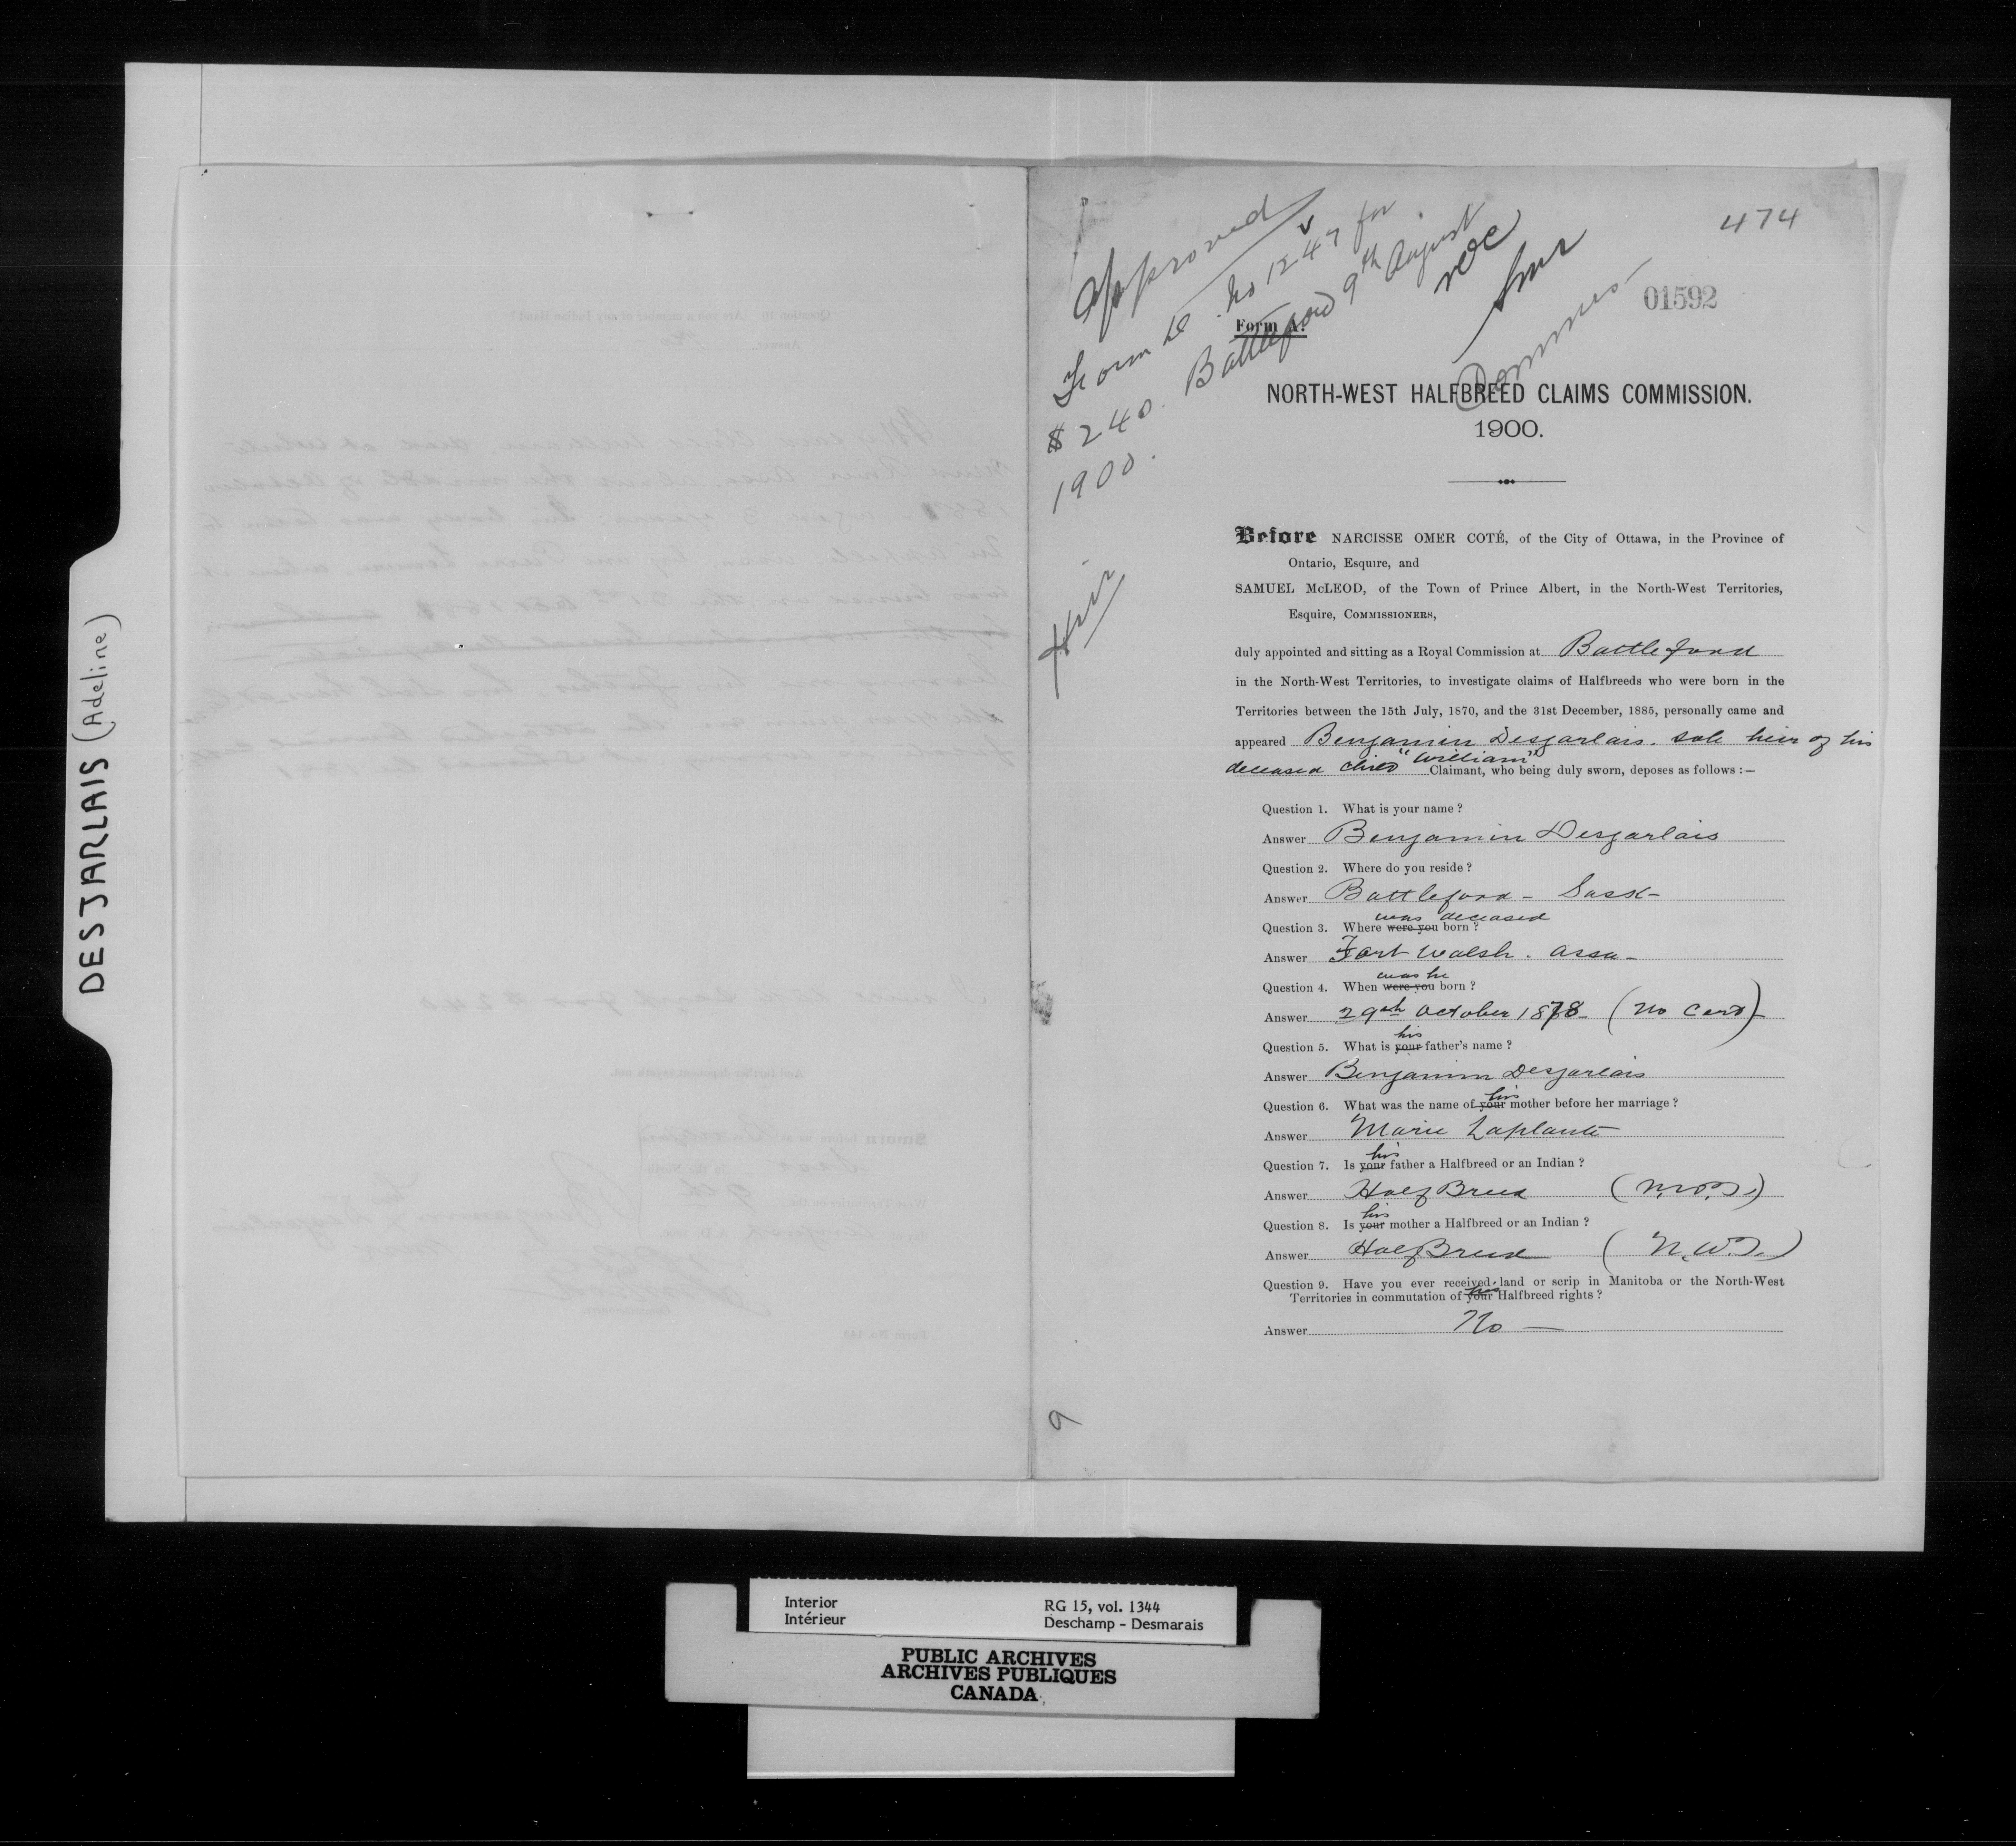 DESJARLAIS (Adeline)
474
01592
Approved
Form D. No 1247 for
$240. Battleford 9th August
1900.
NOC
Heir
Form A.
NORTH-WEST HALFBREED CLAIMS COMMISSION.
1900.
Before NARCISSE OMER COTÉ, of the City of Ottawa, in the Province of
Ontario, Esquire, and
SAMUEL McLEOD, of the Town of Prince Albert, in the North-West Territories,
Esquire, COMMISSIONERS,
duly appointed and sitting as a Royal Commission at Battleford
in the North-West Territories, to investigate claims of Halfbreeds who were born in the
Territories between the 15th July, 1870, and the 31st December, 1885, personally came and
appeared Benjamin Desjarlais. sole heir of his
deceased child "William" Claimant, who being duly sworn, deposes as follows :—
Question 1. What is your name ?
Answer Benjamin Desjarlais
Question 2. Where do you reside ?
Answer Battleford - Sask -
was deceased
Question 3. Where were you born ?
Answer Fort Walsh. Assa -
was he
Question 4. When were you born ?
Answer 29th October 1878 - (No Cert) -
his
Question 5. What is your father's name ?
Answer Benjamin Desjarlais
his
Question 6. What was the name of your mother before her marriage ?
Answer Marie Laplante
his
Question 7. Is your father a Halfbreed or an Indian ?
Answer Half Breed (N.W.T.)
his
Question 8. Is your mother a Halfbreed or an Indian ?
Answer Half Breed (N.W.T.)
Question 9. Have you ever received land or scrip in Manitoba or the North-West
his
Territories in commutation of your Halfbreed rights ?
Answer No —
9
Interior
Intérieur
RG 15, vol. 1344
Deschamp - Desmarais
PUBLIC ARCHIVES
ARCHIVES PUBLIQUES
CANADA